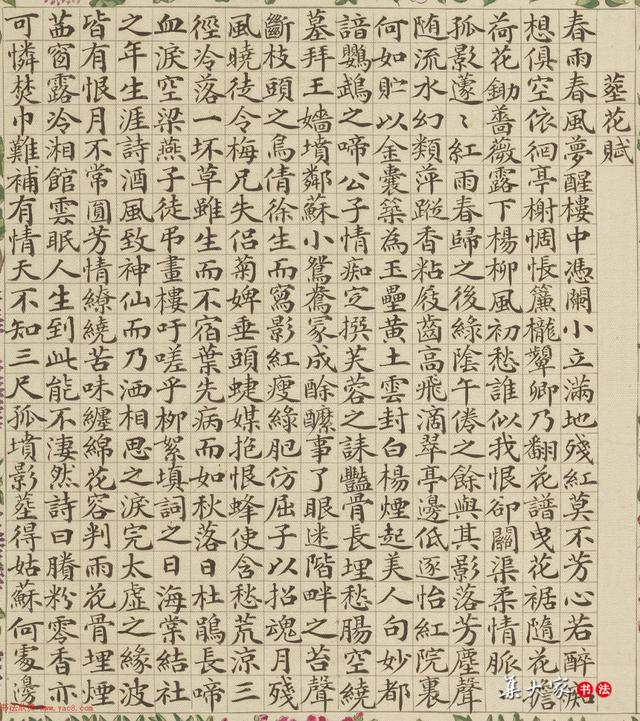 塟花賦
春雨春風夢醒樓中憑闌小立滿地殘紅莫不芳心若醉痴
想俱空依徊亭榭惆悵簾櫳顰卿乃翻花譜曳花裾隨花擔
荷花鋤薔薇露下楊柳風初愁誰似我恨卻關渠柔情脈〻
孤影蘧〻紅雨春歸之後綠陰午倦之餘與其影落芳塵聲
随流水幻類萍蹤香粘屐齒高飛滴翠亭邊低逐怡紅院裏
何如貯以金囊築為玉壘黄土雲封白楊煙起美人句妙都
諳鸚鵡之啼公子情痴定撰芙蓉之誄豔骨長埋愁腸空繞
墓拜王嬙墳鄰蘇小鴛鴦冢成酴醾事了眼迷階畔之苔聲
斷枝頭之鳥倩徐生而寫影紅瘦綠肥仿屈子以招魂月殘
風曉徒令梅兄失侣菊婢垂頭蜨媒抱恨蜂使含愁荒涼三
徑冷落一坏草雖生而不宿葉先病而如秋落日杜鵑長啼
血淚空梁燕子徒弔畫樓吁嗟乎柳絮填詞之日海棠結社
之年生涯詩酒風致神仙而乃洒相思之淚完太虛之緣波
皆有恨月不常圓芳情繚繞苦味纏綿花容判雨花骨埋煙
茜窗露冷湘館雲眠人生到此能不淒然詩曰賸粉零香亦
可憐焚巾難補有情天不知三尺孤墳影塟得姑蘇何處邊
集大家书法
www.yac8.com